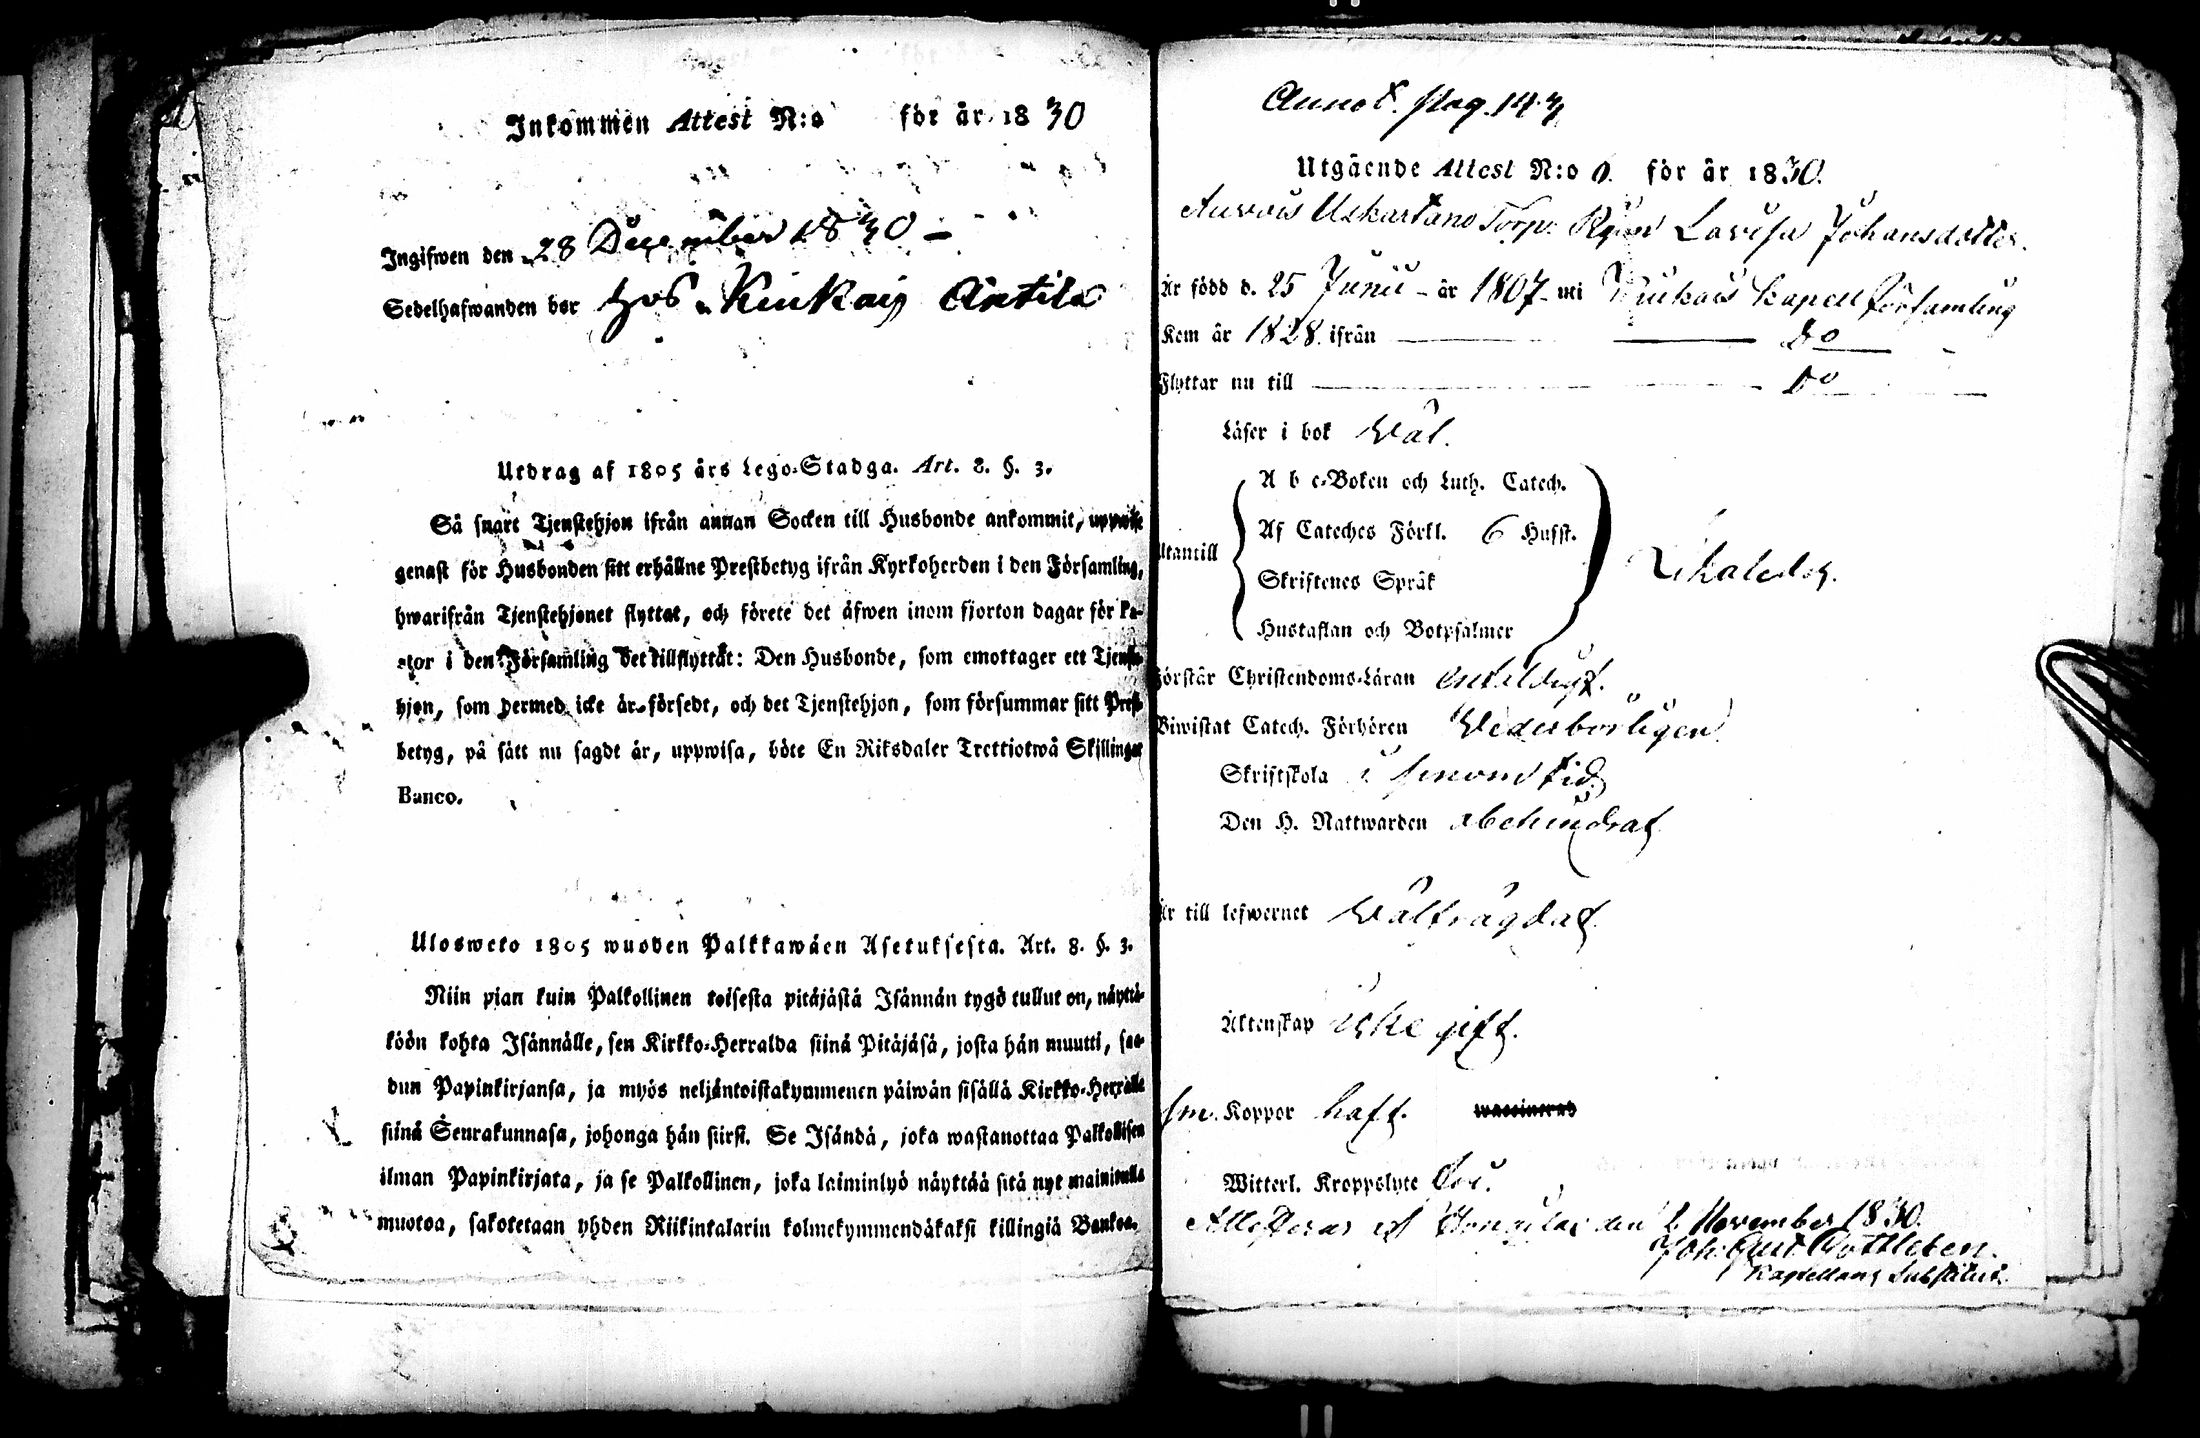 Inkommen Attest N:o för år 1830
Ingifwen den 28 December 1830 –
Sedelhafwanden bor hos Kiukais Anttila
Utdrag af 1805 års Lego-Stadga. Art. 8. §. 3.
Så snart Tjenstehjon ifrån annan Socken till Husbonde ankommit, uppwise
genast för Husbonden sitt erhållne Prestbetyg ifrån Kyrkoherden i den Församling,
hwarifrån Tjenstehjonet flyttat, och förete det äfwen inom fjorton dagar för Pa-
stor i den Församling det tillflyttat: Den Husbonde, som emottager ett Tjenste-
hjon, som dermed icke är försedt, och det Tjenstehjon, som försummar sitt Prest-
betyg, på sätt nu sagdt är, uppwisa, böte En Riksdaler Trettiotwå Skillingar
Banco.
Ulosweto 1805 wuoden Palkkawäen Asetuksesta. Art. 8. §. 3.
Niin pian kuin Palkollinen toisesta pitäjästä Isännän tygö tullut on, näyttä-
köön kohta Isännälle, sen Kirkko-Herralda siinä Pitäjäsä, josta hän muutti, saa-
dun Papinkirjansa, ja myös neljäntoistakymmenen päiwän sisällä Kirkko-Herralle
siinä Seurakunnasa, johonga hän siirsi. Se Isändä, joka wastanottaa Palkollisen
ilman Papinkirjata, ja se Palkollinen, joka laiminlyö näyttää sitä nyt mainitulla
muotoa, sakotetaan yhden Riikintalarin kolmekymmendäkaksi killingiä Bankoa.
Annot. pag. 143
Utgående Attest N:o för år 1830.
Torp. Lovisa Johansdotter.
Är född d. 25 Junii – år 1807 – uti Kiukais kapell församling
Kom år 1828. ifrån Do
Flyttar nu till Do
Läser i bok Wäl.
A b c-Boken och Luth. Catech.
Af Cateches Förkl. 6 Hufst.
Utantill
Skriftenes Språk
Hustaflan och Botpsalmer
Förstår Christendoms-Läran enfaldigt.
Biwistat Catech. Förhören Wederbörligen
Skriftskola i sinom tid
Den H. Nattwarden obehindrat
Är till lefwernet Wälfrägdat
Äktenskap icke gift.
Sm. Koppor haft. waccinerad
Witterl. Kroppslyte
Attesteras af Hongula den November 1830.
Joh. Gust. Gottleben.
Kapellans Substitut.